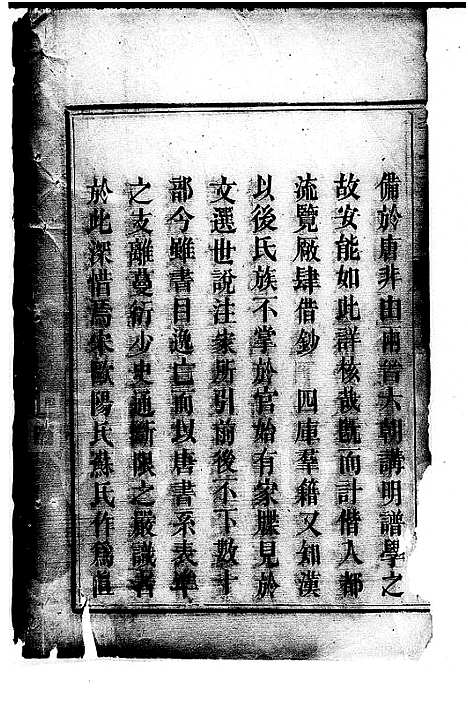 備於唐非由兩晉六朝講明譜學之
故安能如此詳核哉既而計偕入都
流覽廠肆借鈔 四庫羣籍又知漢
以後氏族不掌於官始有家牒見於
文選世說注家所引前後不下數十
部今雖書目逸亡而以唐書系表準
之支離蔓衍少史通斷限之嚴識者
於此深惜焉宋歐陽氏蘇氏作爲直